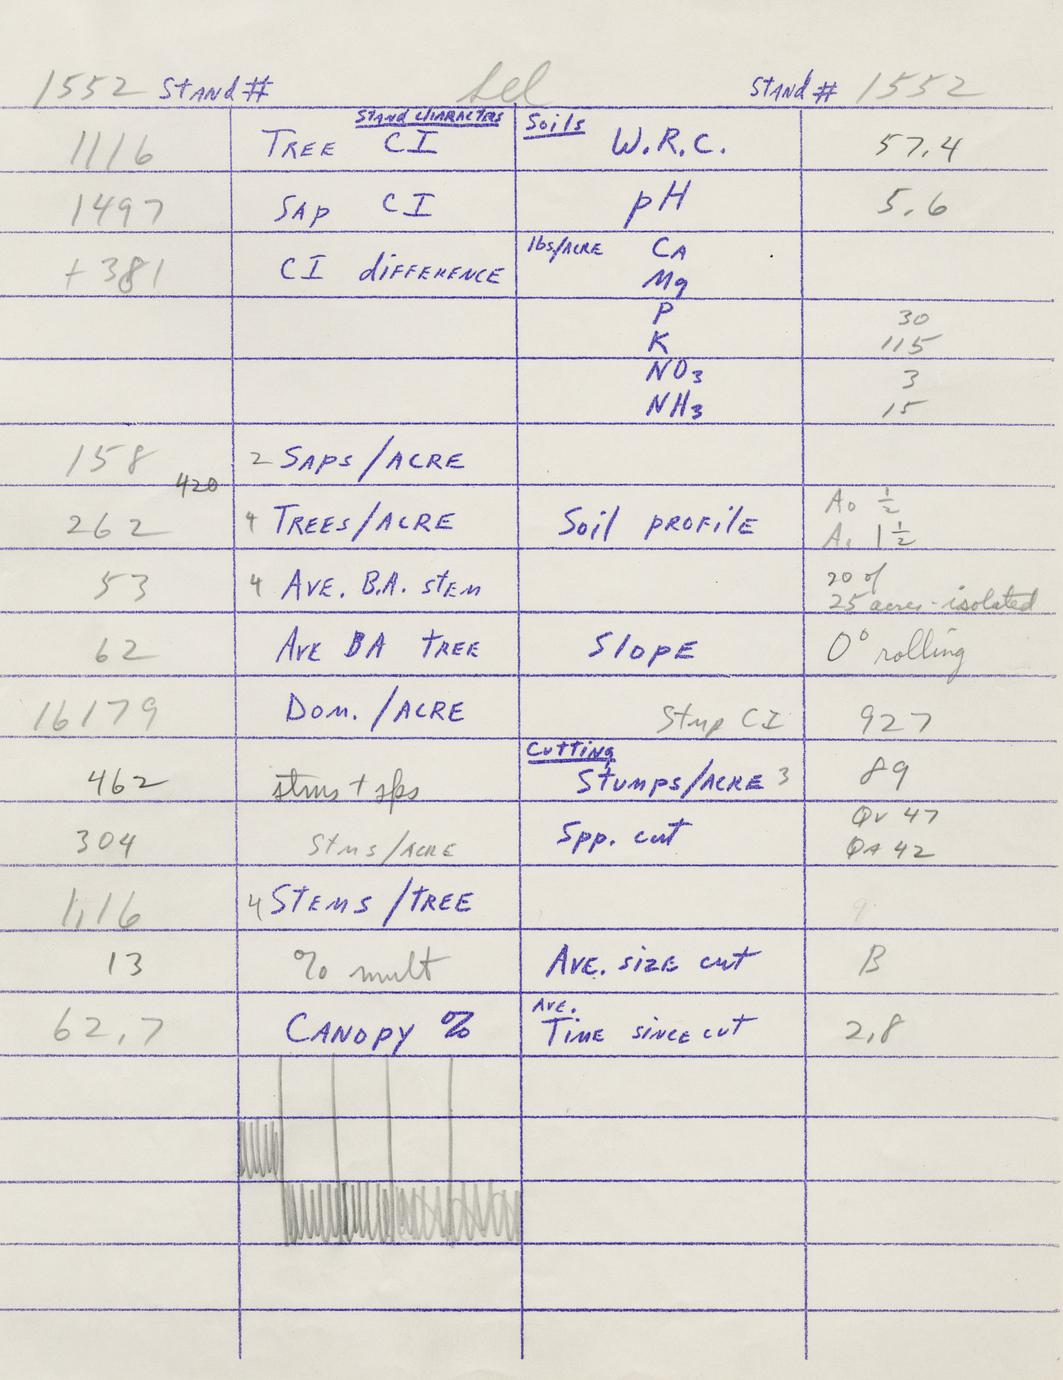 1552 STAND # Sel STAND # 1552
STAND CHARACTERS Soils
1116 TREE CI W.R.C. 57.4
1497 SAP CI pH 5.6
+381 CI diFFERENCE lbs/ACRE CA
Mg
P 30
K 115
NO3 3
NH3 15
158 2 SAPS/ACRE
420
262 4 TREES/ACRE Soil PROFilE A0 ½
A1 1½
53 4 AVE. B.A. STEM 20 of
25 acres - isolated
62 AVE BA TREE SlOPE 0° rolling
16179 DOM./ACRE Stmp CI 927
Cutting
462 stms + sps STUMPS/ACRE 3 89
304 Stms/ACRE Spp. cut QV 47
QA 42
1,16 4 STEMS/TREE 9
13 % mult AVE. SIZE cut B
62,7 CANOPY % AVE. TIME SINCE cut 2,8